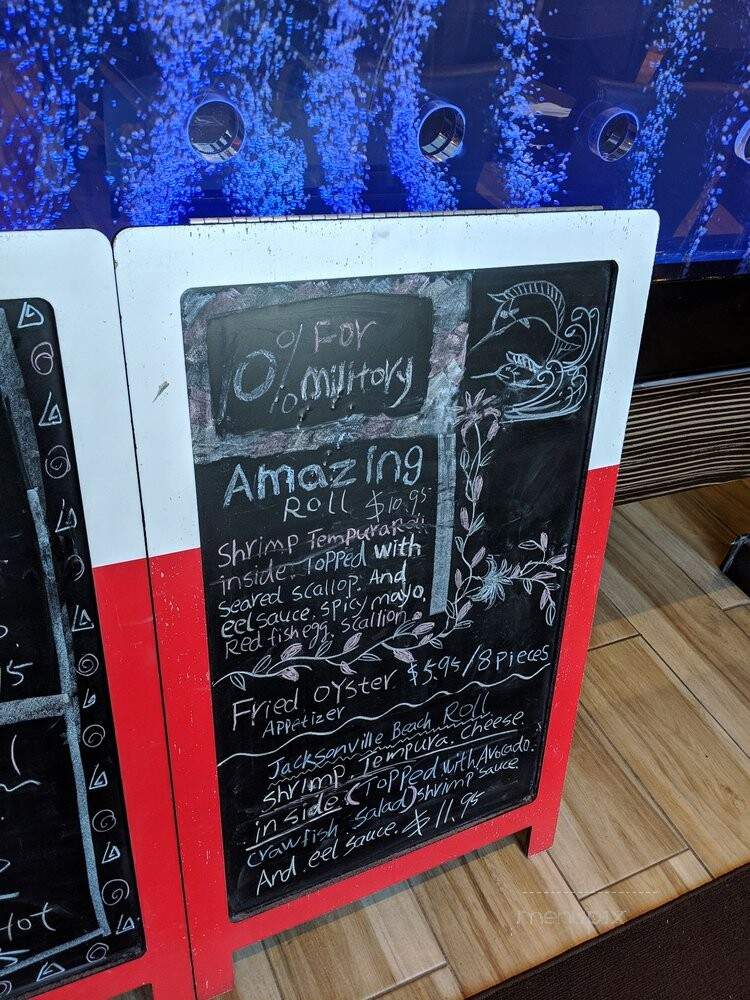 10% For
military
Amazing
Roll $10.95
Shrimp Tempura
inside. Topped with
seared scallop. And
eel sauce, spicy mayo,
Red fish egg. scallion
Fried oyster $5.95/8 pieces
Appetizer
Jacksonville Beach Roll
shrimp. Tempura. cheese.
in side (Topped with Avocado.
crawfish salad) shrimp sauce
And eel sauce. $11.95
Hot
menupix